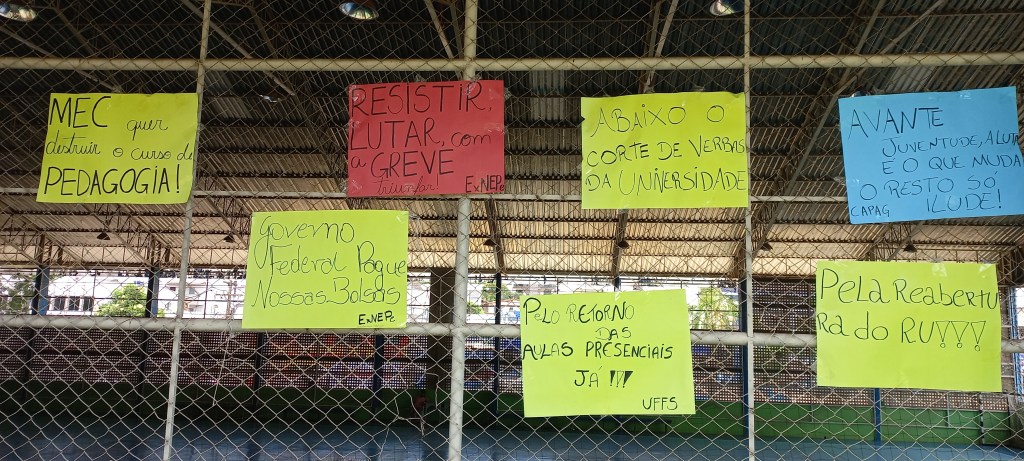 MEC quer
destruir o curso de
PEDAGOGIA!
RESISTIR,
LUTAR, com
a GREVE
triunfar!
ExNEPe
ABAIXO O
CORTE DE VERBAS
DA UNIVERSIDADE
AVANTE
JUVENTUDE, A LUTA
É O QUE MUDA
O RESTO SÓ
ILUDE!
CAPAG
Governo
Federal Pague
Nossas Bolsas
ExNEPe
PELO RETORNO
DAS
AULAS PRESENCIAIS
JÁ !!!
UFFS
Pela Reabertu
ra do RU!!!